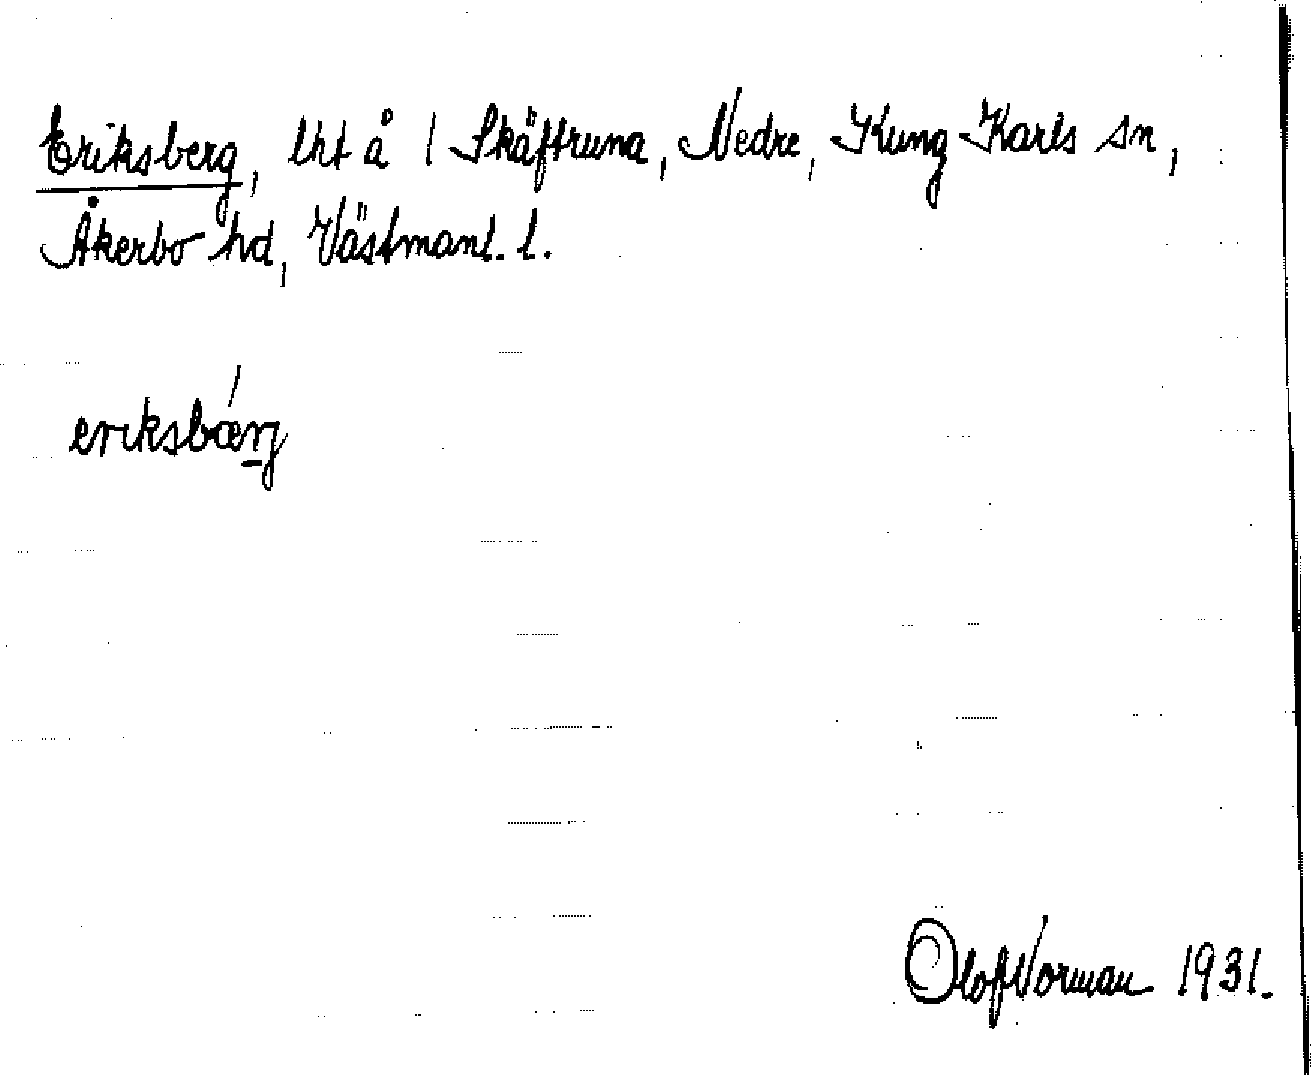 Eriksberg, lht å 1 Skäftruna, Nedre, Kung Karls sn,
Åkerbo hd, Västmanl. l.
eriksbærj
Olof Norman 1931.